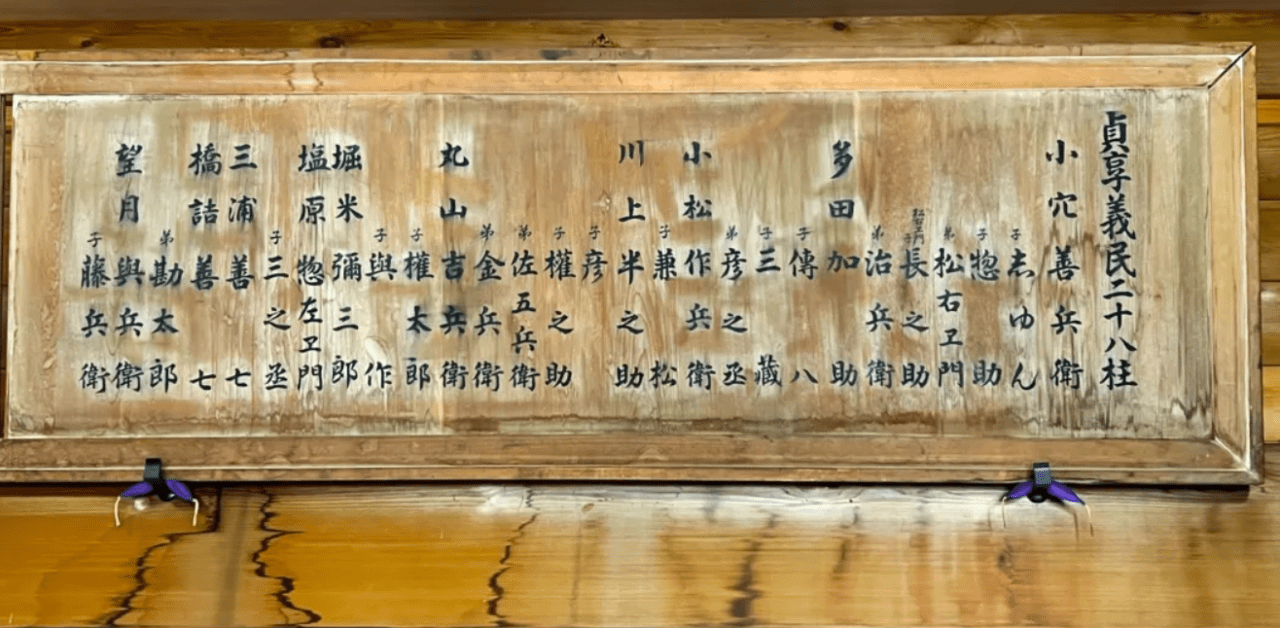 貞享義民二十八柱
小穴善兵衛
子 志ゆん
子 惣助
弟 松右ヱ門
松右ヱ門子 長之助
弟 治兵衛
多田加助
子 傳八
子 三藏
弟 彦之丞
小松作兵衛
子 兼松
川上半之助
子 彦
子 權之助
弟 佐五兵衛
弟 金兵衛
丸山吉兵衛
子 權太郎
子 與作
堀米彌三郎
塩原惣左ヱ門
子 三之丞
三浦善七
橋詰善七
弟 勘太郎
望月與兵衛
子 藤兵衛